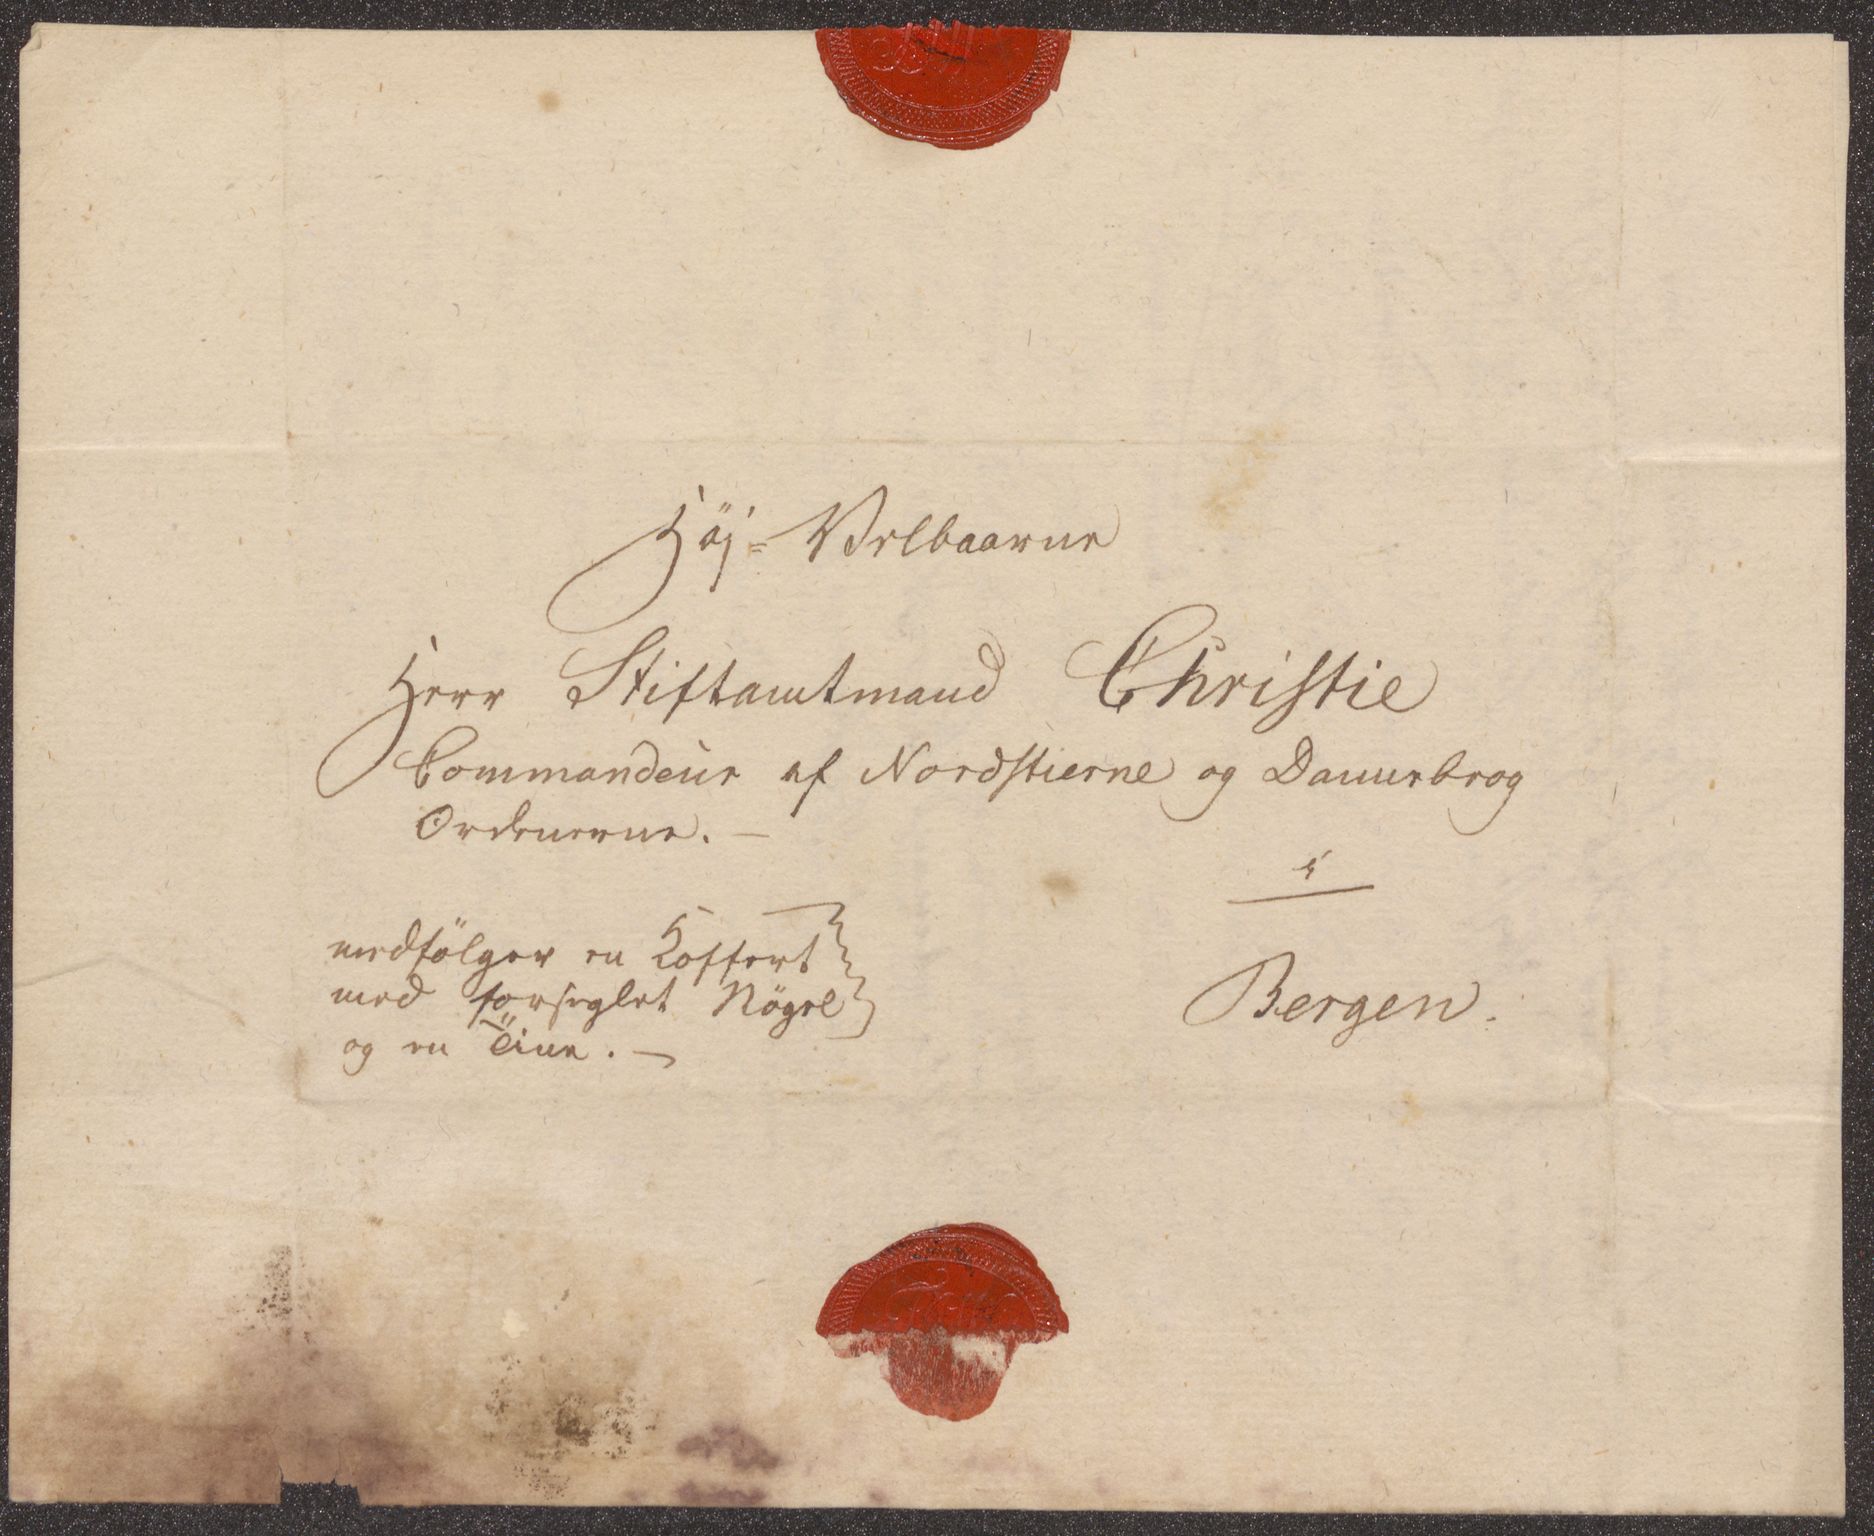 Höj= Velbaarne
Herr Stiftamtmand Christie
Commandeur af Nordstierne og Dannebrog
Ordenerne. —
i
Bergen.
medfölger en Koffert
med forseglet Nögel
og en Tine. —